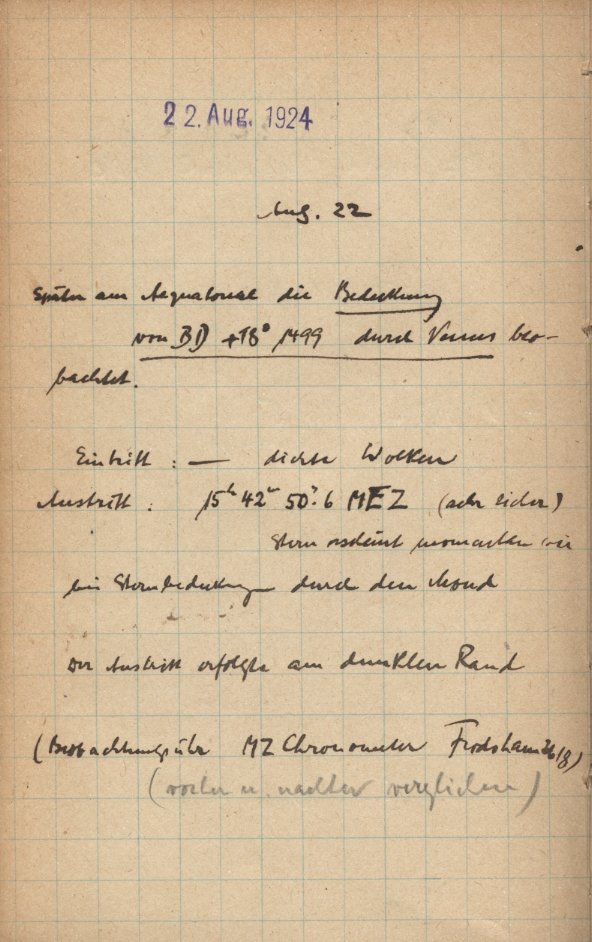 22. Aug. 1924
Aug. 22
Später am Aequatoreal die Bedeckung
von BD +18° 1499 durch Venus beo-
bachtet.
Eintritt : — dichte Wolken
Austritt : 15ʰ 42ᵐ 50ˢ.6 MEZ (sehr sicher)
Stern erscheint momentan wie
bei Sternbedeckungen durch den Mond
Der Austritt erfolgte am dunklen Rand
(Beobachtungsuhr MZ Chronometer Frodsham
(vorher u. nachher verglichen)